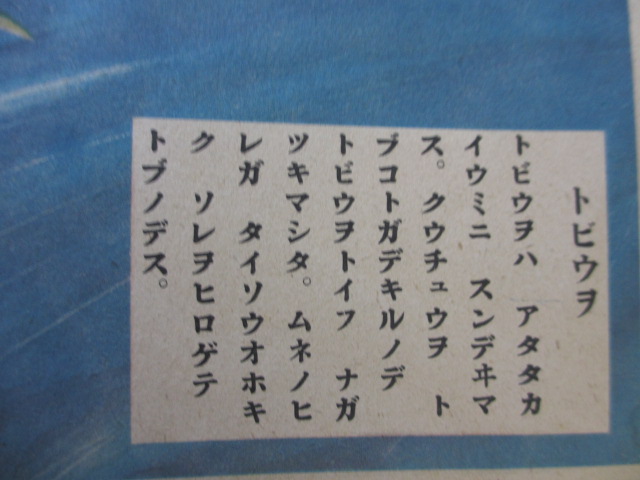 トビウヲ
トビウヲハ アタタカ
イウミニ スンデヰマ
ス。クウチュウヲ ト
ブコトガデキルノデ
トビウヲトイフ ナガ
ツキマシタ。ムネノヒ
レガ タイソウオホキ
ク ソレヲヒロゲテ
トブノデス。